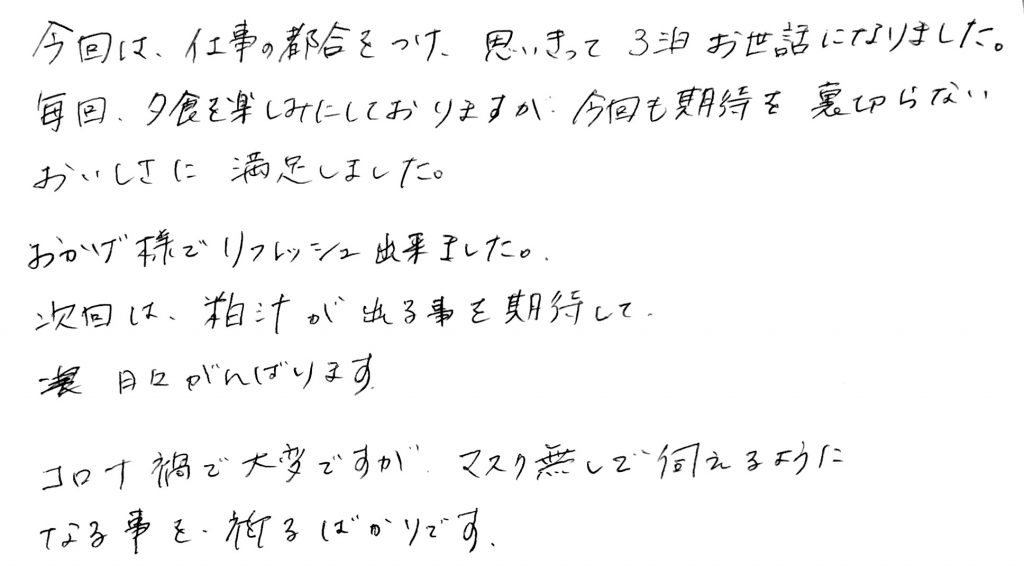 今回は、仕事の都合をつけ、思いきって3泊お世話になりました。
毎回、夕食を楽しみにしておりますが、今回も期待を裏切らない
おいしさに満足しました。
おかげ様でリフレッシュ出来ました。
次回は、粕汁が出る事を期待して、
日々がんばります。
コロナ禍で大変ですが、マスク無しで伺えるように
なる事を、祈るばかりです。